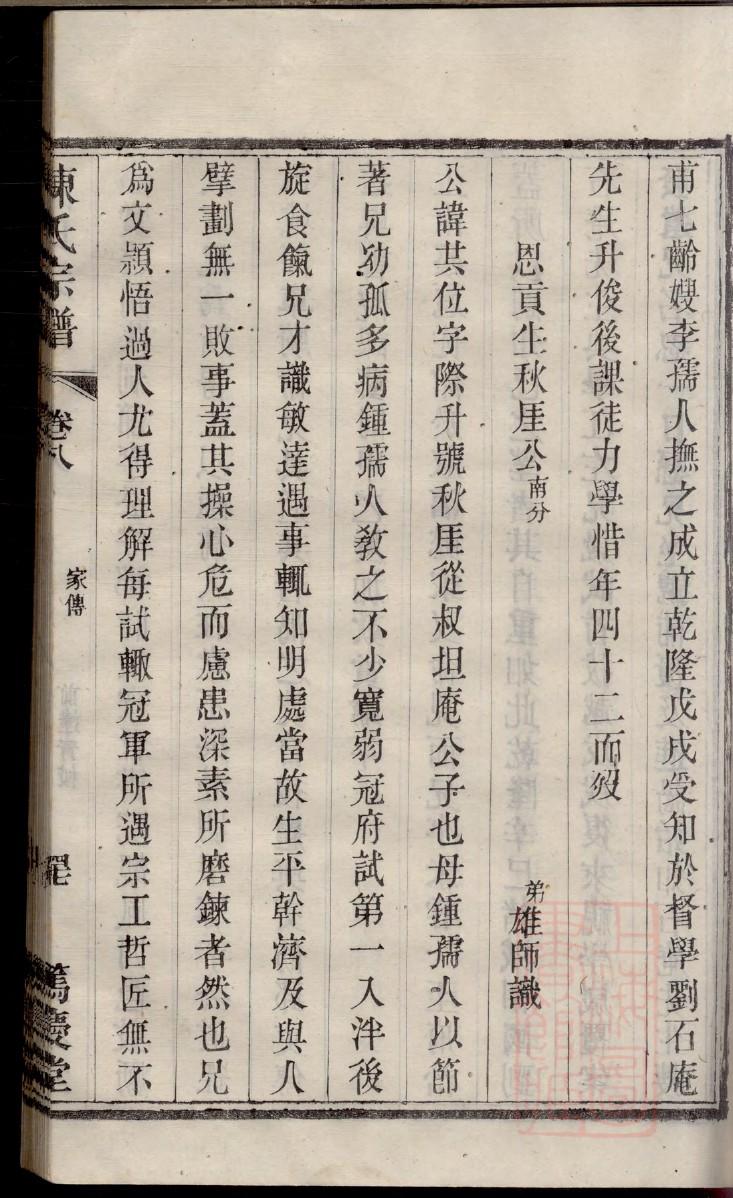 甫七齡嫂李孺人撫之成立乾隆戊戌受知於督學劉石庵
先生升俊後課徒力學惜年四十二而歿
恩貢生秋厓公南分
弟雄師識
公諱共位字際升號秋厓從叔坦庵公子也母鍾孺人以節
著兄幼孤多病鍾孺人教之不少寬弱冠府試第一入泮後
旋食餼兄才識敏達遇事輒知明處當故生平幹濟及與人
擘劃無一敗事蓋其操心危而慮患深素所磨鍊者然也兄
爲文穎悟過人尤得理解每試輙冠軍所遇宗工哲匠無不
陳氏宗譜
卷八
家傳
篤慶堂